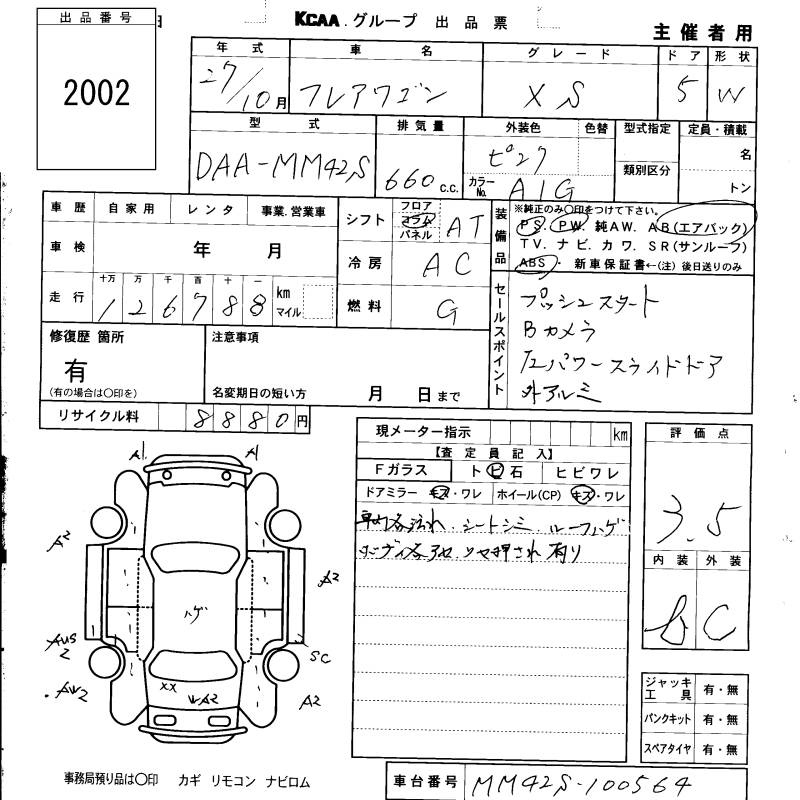 出品番号
2002
KCAA.グループ 出品票
主催者用
年式 車名 グレード ドア 形状
27/10月 フレアワゴン XS 5 W
型式 排気量 外装色 色替 型式指定 定員・積載
DAA-MM42S 660c.c. ピンク 名
類別区分
カラーNo. A1G トン
車歴 自家用 レンタ 事業.営業車
シフト フロア コラム パネル AT
装備品
※純正のみ○印をつけて下さい。
PS. PW. 純AW. AB(エアバック)
TV. ナビ. カワ. SR(サンルーフ)
ABS・ 新車保証書←(注) 後日送りのみ
車検 年 月
冷房 AC
走行 十万 万 千 百 十 一
126788 km マイル
燃料 G
セールスポイント
プッシュスタート
Bカメラ
1/2パワースライドドア
外アルミ
修復歴 箇所
有
(有の場合は○印を)
注意事項
名変期日の短い方 月 日まで
リサイクル料 8880円
現メーター指示 km
【査定員記入】
Fガラス トビ石 ヒビワレ
ドアミラー キズ・ワレ ホイール(CP) キズ・ワレ
車内各汚れ.シートシミ.ルーフハゲ
ボディ各アセ.ツヤ押され有り
評価点
3.5
内装 外装
b C
A1 A1
A2 A2
ハゲ
SC
XX
A2
ジャッキ工具 有・無
パンクキット 有・無
スペアタイヤ 有・無
事務局預り品は○印 カギ リモコン ナビロム
車台番号 MM42S-100564